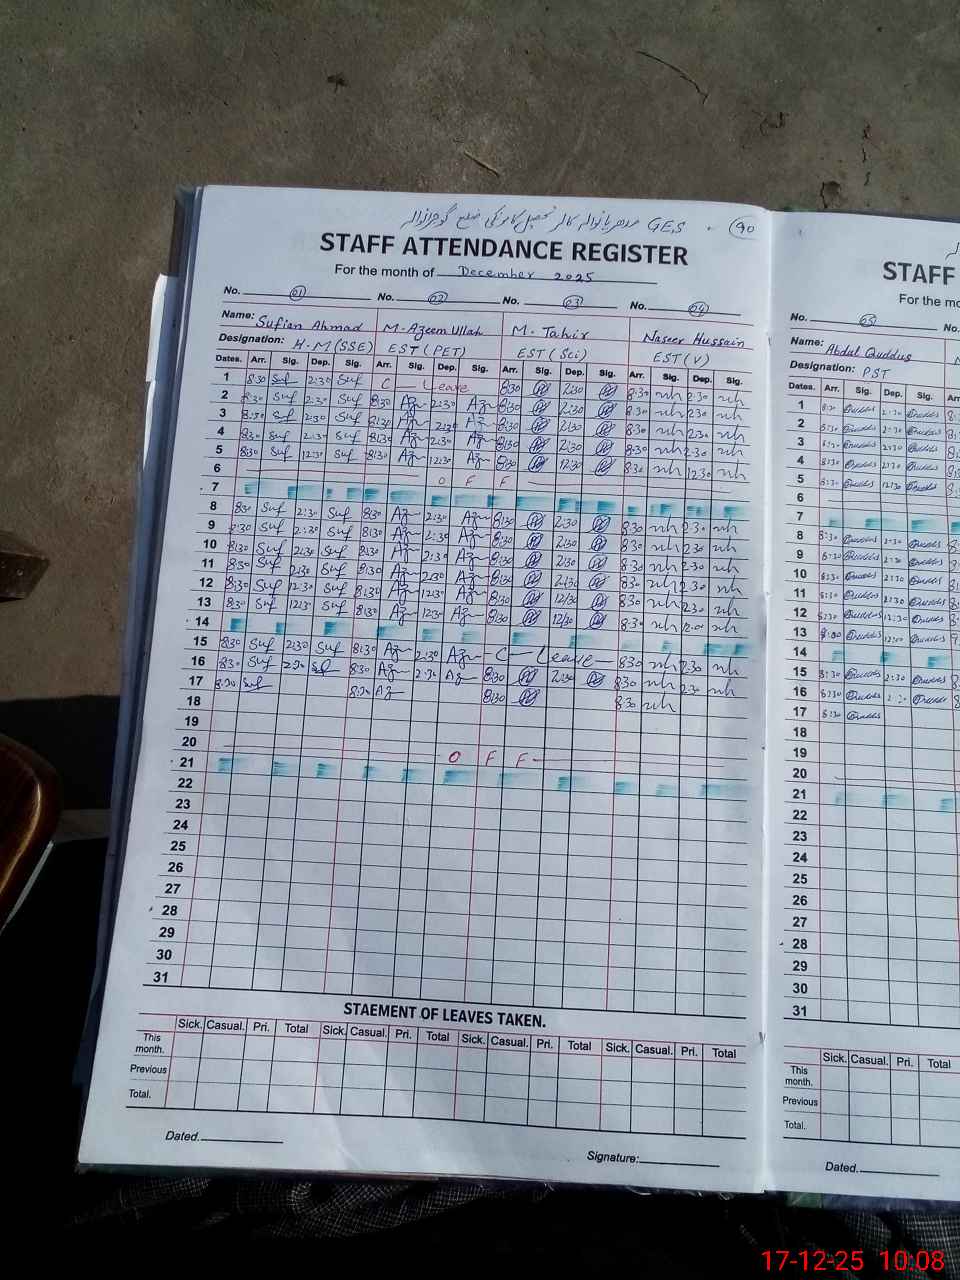 GES مدھریانوالہ کلاں تحصیل کامونکی ضلع گوجرانوالہ
90
STAFF ATTENDANCE REGISTER
For the month of December 2025
No. 01 No. 02 No. 03 No. 04
Name: Sufian Ahmad M. Azeem Ullah M. Tahir Naseer Hussain
Designation: H.M (SSE) EST (PET) EST (Sci) EST (V)
Dates. Arr. Sig. Dep. Sig. Arr. Sig. Dep. Sig. Arr. Sig. Dep. Sig. Arr. Sig. Dep. Sig.
1 8:30 Suf 2:30 Suf C — Leave 8:30 2:30 8:30 nh 2:30 nh
2 8:30 Suf 2:30 Suf 8:30 Az 2:30 Az 8:30 2:30 8:30 nh 2:30 nh
3 8:30 Suf 2:30 Suf 8:30 Az 2:30 Az 8:30 2:30 8:30 nh 2:30 nh
4 8:30 Suf 2:30 Suf 8:30 Az 2:30 Az 8:30 2:30 8:30 nh 2:30 nh
5 8:30 Suf 12:30 Suf 8:30 Az 12:30 Az 8:30 12:30 8:30 nh 12:30 nh
6 O F F
7
8 8:30 Suf 2:30 Suf 8:30 Az 2:30 Az 8:30 2:30 8:30 nh 2:30 nh
9 8:30 Suf 2:30 Suf 8:30 Az 2:30 Az 8:30 2:30 8:30 nh 2:30 nh
10 8:30 Suf 2:30 Suf 8:30 Az 2:30 Az 8:30 2:30 8:30 nh 2:30 nh
11 8:30 Suf 2:30 Suf 8:30 Az 2:30 Az 8:30 2:30 8:30 nh 2:30 nh
12 8:30 Suf 12:30 Suf 8:30 Az 12:30 Az 8:30 12:30 8:30 nh 12:30 nh
13 8:30 Suf 12:30 Suf 8:30 Az 12:30 Az 8:30 12:30 8:30 nh nh
14
15 8:30 Suf 2:30 Suf 8:30 Az 2:30 Az C — Leave 8:30 nh 2:30 nh
16 8:30 Suf 2:30 Suf 8:30 Az 2:30 Az 8:30 2:30 8:30 nh 2:30 nh
17 8:30 Suf 8:30 Az 8:30 8:30 nh
18
19
20 O F F
21
22
23
24
25
26
27
28
29
30
31
STAEMENT OF LEAVES TAKEN.
Sick. Casual. Pri. Total Sick. Casual. Pri. Total Sick. Casual. Pri. Total Sick. Casual. Pri. Total
This month.
Previous
Total.
Dated.
Signature:
STAFF
For the mo
No. 05 No.
Name: Abdul Quddus
Designation: PST
Dates. Arr. Sig. Dep. Sig.
1 8:30 Quddus 2:30 Quddus
2 8:30 Quddus 2:30 Quddus
3 8:30 Quddus 2:30 Quddus
4 8:30 Quddus 2:30 Quddus
5 8:30 Quddus 12:30 Quddus
6
7
8 8:30 Quddus 2:30 Quddus
9 8:30 Quddus 2:30 Quddus
10 8:30 Quddus 2:30 Quddus
11 8:30 Quddus 2:30 Quddus
12 8:30 Quddus 12:30 Quddus
13 Quddus 12:30 Quddus
14
15 8:30 Quddus 2:30 Quddus
16 8:30 Quddus 2:30 Quddus
17 8:30 Quddus
18
19
20
21
22
23
24
25
26
27
28
29
30
31
Sick. Casual. Pri. Total
This month.
Previous
Total.
Dated.
17-12-25 10:08